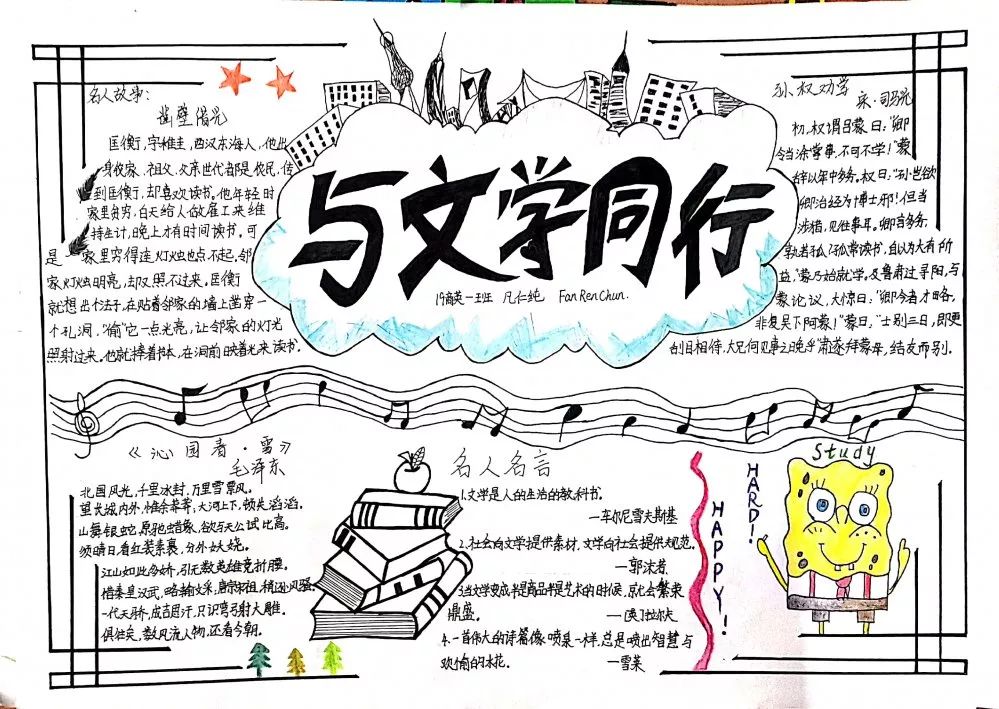 名人故事：
凿壁借光
匡衡，字稚圭，西汉东海人，他出
身农家，祖父、父亲世代都是农民，传
到匡衡，却喜欢读书。他年轻时
家里贫穷，白天给人做雇工来维
持生计，晚上才有时间读书。可
是家里穷得连灯烛也点不起，邻
家灯烛明亮，却又照不过来。匡衡
就想出个法子，在贴着邻家的墙上凿穿一
个孔洞，“偷”它一点光亮，让邻家的灯光
照射过来。他就捧着书本，在洞前映着光来读书。
与文学同行
19商英一班 凡仁纯 Fan Ren Chun.
孙权劝学
宋·司马光
初，权谓吕蒙曰：“卿
今当涂掌事，不可不学！”蒙
辞以军中多务。权曰，“孤岂欲
卿治经为博士邪！但当
涉猎，见往事耳。卿言多务，
孰若孤？孤常读书，自以为大有所
益。”蒙乃始就学。及鲁肃过寻阳，与
蒙论议，大惊曰：“卿今者才略，
非复吴下阿蒙！”蒙曰，“士别三日，即更
刮目相待，大兄何见事之晚乎”肃遂拜蒙母，结友而别。
《沁园春·雪》
毛泽东
北国风光，千里冰封，万里雪飘。
望长城内外，惟余莽莽；大河上下，顿失滔滔。
山舞银蛇，原驰蜡象，欲与天公试比高。
须晴日，看红装素裹，分外妖娆。
江山如此多娇，引无数英雄竞折腰。
惜秦皇汉武，略输文采；唐宗宋祖，稍逊风骚。
一代天骄，成吉思汗，只识弯弓射大雕。
俱往矣，数风流人物，还看今朝。
名人名言
1.文学是人的生活的教科书。
—车尔尼雪夫斯基
2.社会向文学提供素材，文学向社会提供规范。
—郭沫若
3.当文学变成半是商品半是艺术的时候，就会繁荣
鼎盛。
—[英]拉尔夫
4.一首伟大的诗篇像喷泉一样，总是喷出智慧与
欢愉的水花。
—雪莱
HAPPY!
HARD!
Study